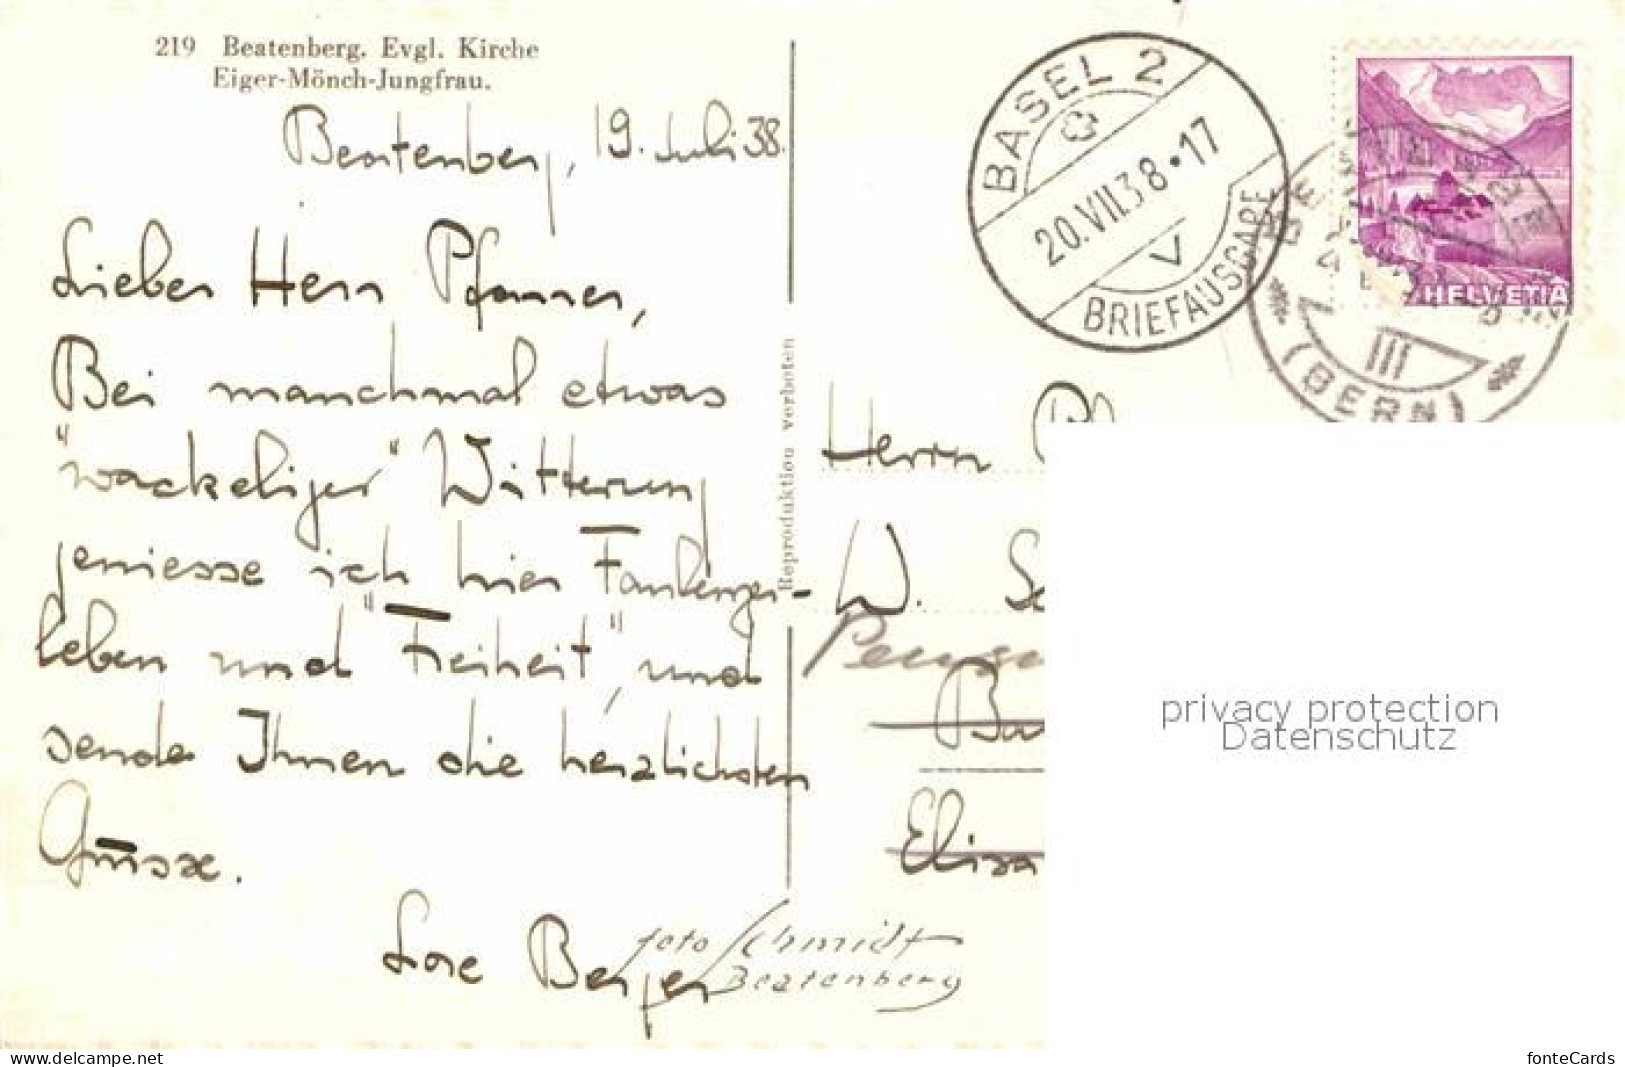 219 Beatenberg. Evgl. Kirche
Eiger-Mönch-Jungfrau.
Beatenberg, 19. Juli 38.
Lieber Herr Pfanner,
Bei manchmal etwas
"wackeliger" Witterung
geniesse ich hier Faulenzer-
leben und "Freiheit", und
sende Ihnen die herzlichsten
Grüsse.
Lore Berger
foto Schmidt
Beatenberg
Reproduktion verboten
BASEL 2
20.VII.38·17
V
BRIEFAUSGABE
HELVETIA
III
(BERN)
Herrn
W.
Elisa
privacy protection
Datenschutz
www.delcampe.net
fonteCards